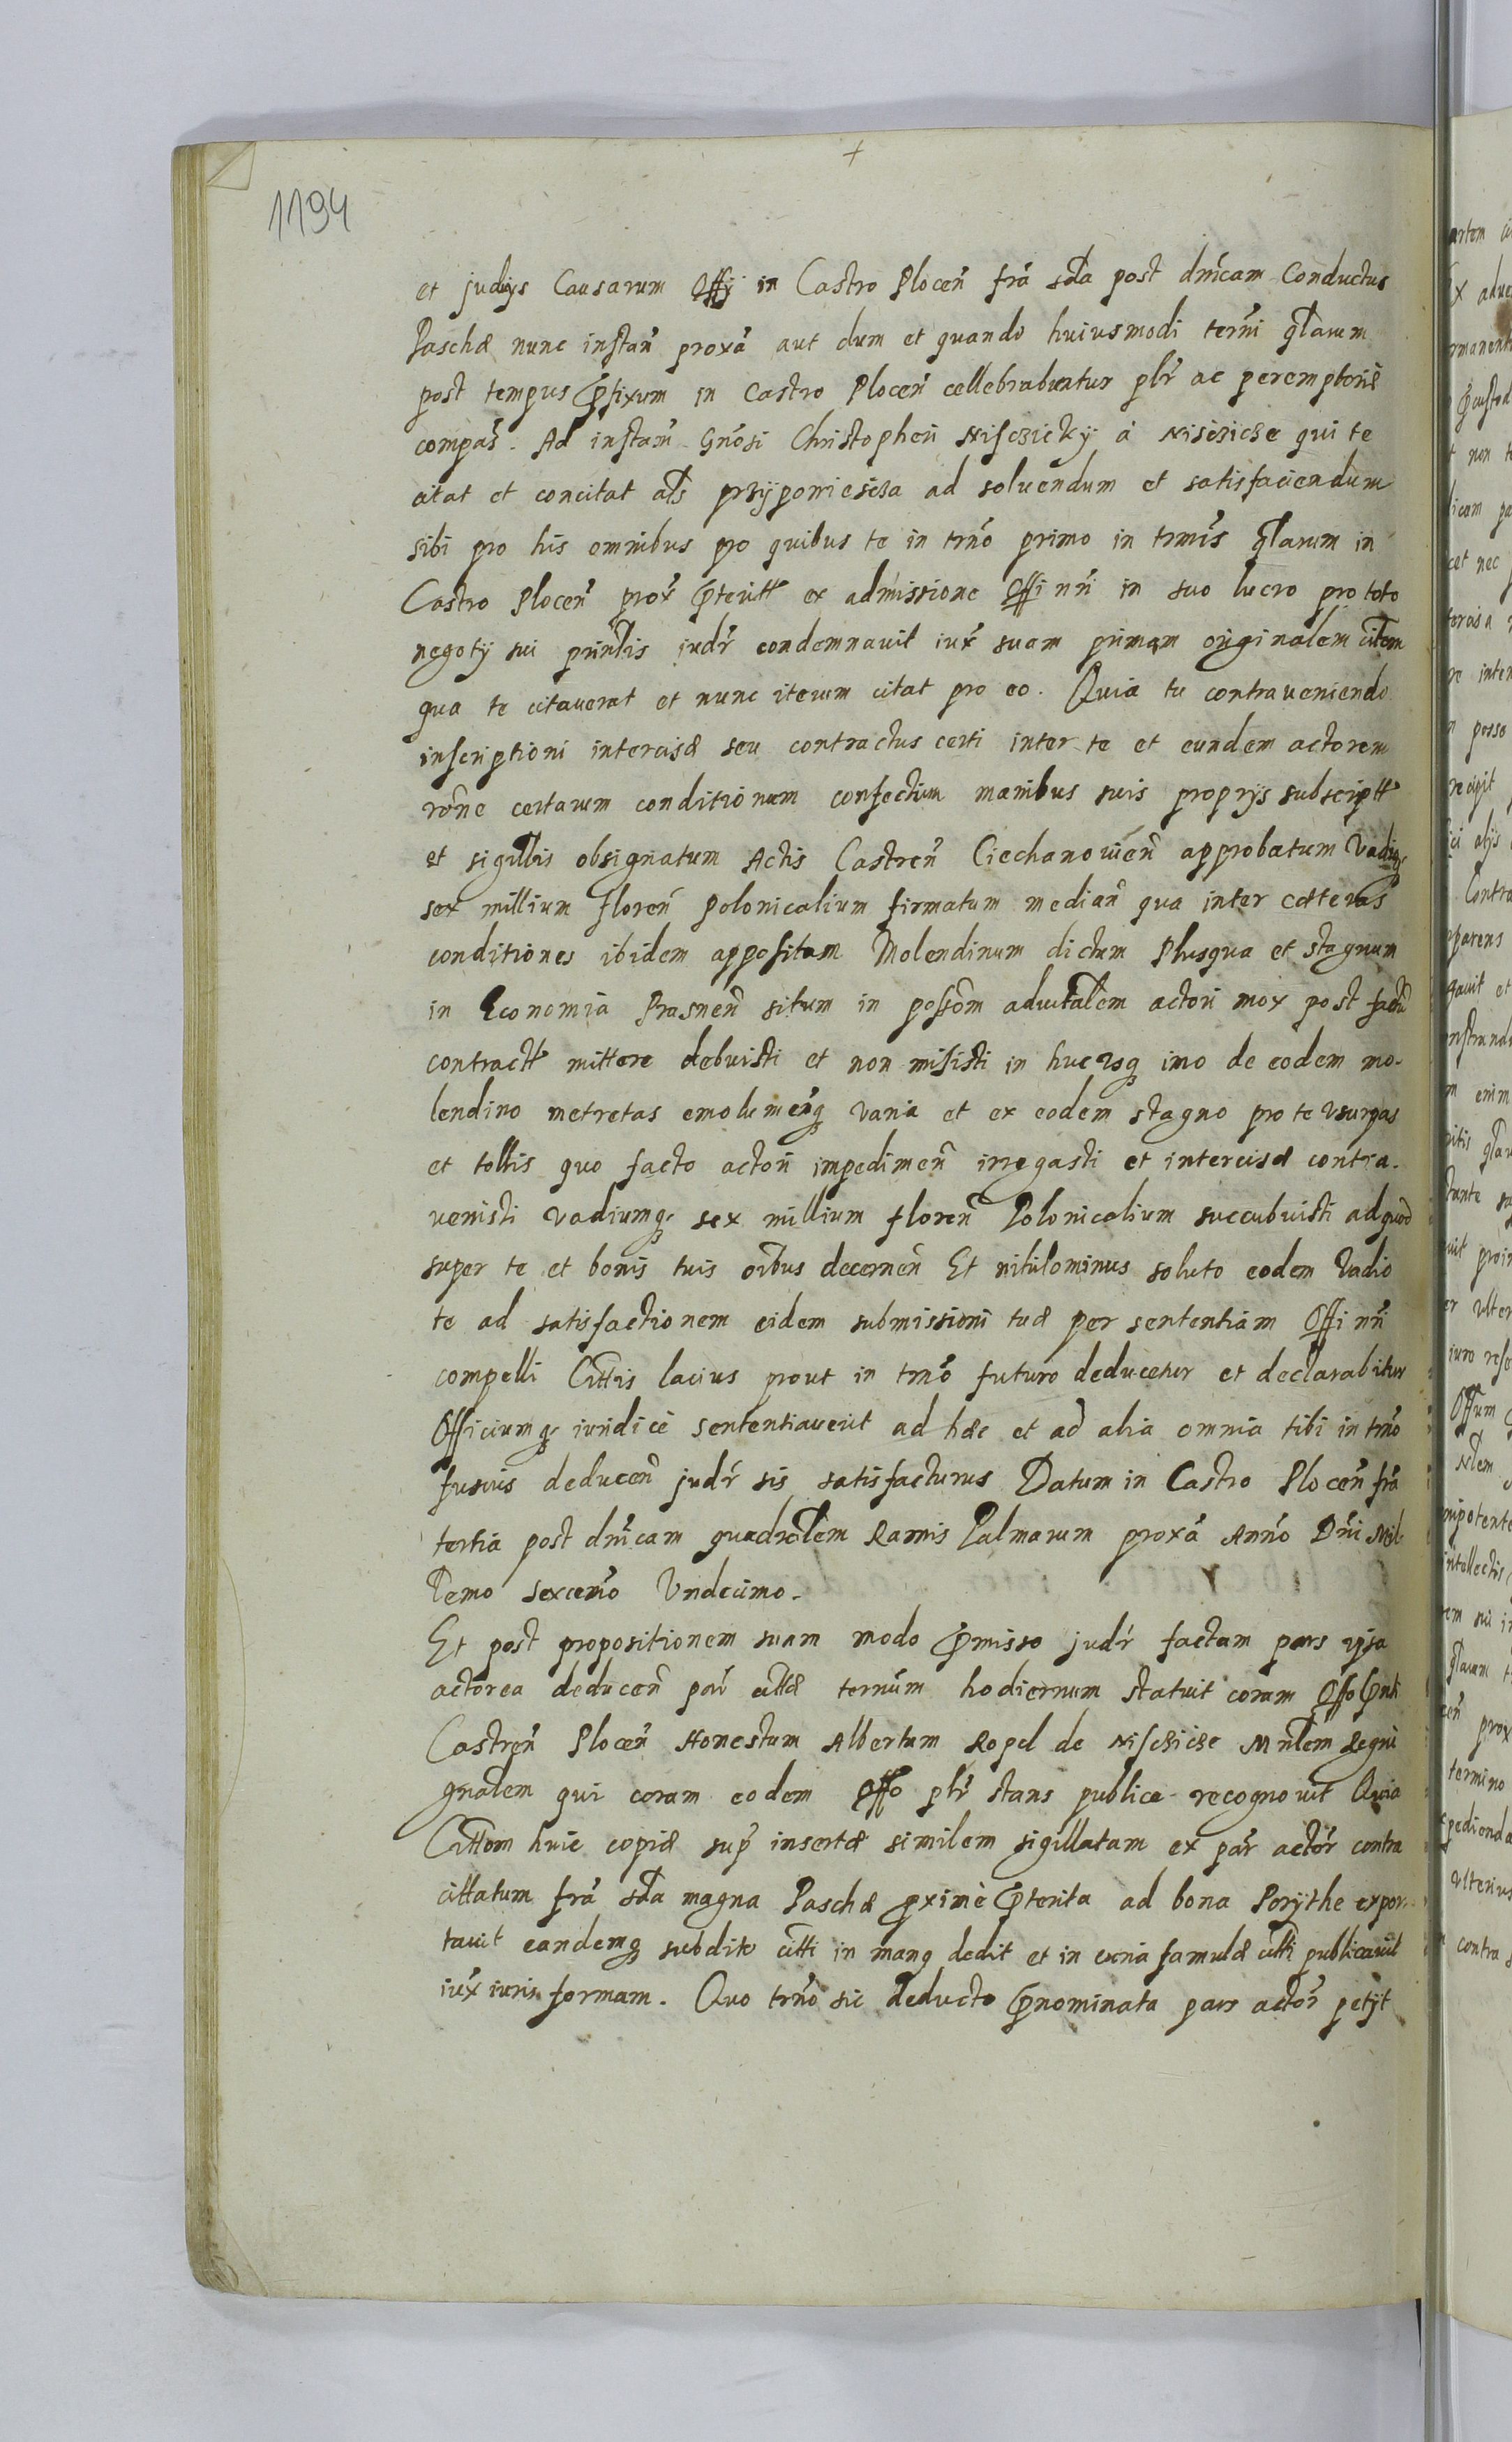 +
1194
et judijs Causarum Offij in Castro Plocen̄ fra̅ sda̅ post dn̅icam Conductus
Paschæ nunc instan̄ proxa̅ aut dum et quando huiusmodi termi̅ q̅larum
post tempus p̅fixum in Castro Plocen̄ cellebrabuntur plr̄ ac peremptorie̅
compas̄. Ad instam̄ Gnosi̅ Christopheri Nisczicky a Nisczicze qui te
citat et concitat al̅s przijpowiescza ad soluendum et satisfaciendum
sibi pro his omnibus pro quibus te in trn̅o primo in trm̅is q̅larum in
Castro Plocen̄ prox̄ p̅terittt̄ ex admissione Offi nr̅i in suo lucro pro toto
negotij sui prin̅lis iudr̄ condemnauit iux̄ suam primam originalem cit̅em
qua te citauerat et nunc iterum citat pro eo. Quia tu contraueniendo
inscriptioni intercisæ seu contractus certi inter te et eundem actorem
ro̅ne certarum conditionum confectum manibus suis proprijs subscriptt̄
et sigillis obsignatum Actis Castren̄ Ciechanouien̄ approbatum Vadioq
sex millium floren̄ Polonicalium firmatum median̄ qua inter cæteras
conditiones ibidem appositam Molendinum dictum Plusqua et stagnum
in Economia Prasnen̄ situm in possom̅ aduitalem actori mox post factu̅
contractt̄ mittere debuisti et non misisti in hucusq imo de eodem mo-
lendino metretas emolumen̄q varia et ex eodem stagno pro te vsurpas
et tollis quo facto actori impedimen̄ irrogasti et intercisæ contra-
uenisti vadiumq sex millium floren̄ Polonicalium succubuisti ad quod
super te et bonis tuis oi̅bus decernen̄ Et nihilominus soluto eodem Vadio
te ad satisfactionem eidem submissioni tuæ per sententiam Offi nr̅i
compelli Cittis lacius prout in trn̅o futuro deducetur et declarabitur
Officiumq iuridice sententiauerit ad hæc et ad alia omnia tibi in trn̅o
fusius deducen̄ judr̄ sis satisfacturus Datum in Castro Plocen̄ fra̅
tertia post dn̅icam quadra̅lem Ramis Palmarum proxa̅ Anno̅ Dn̅i Mil-
lemo sexcemo̅ Vndecimo.
Et post propositionem suam modo p̅misso judr̄ factam pars ipsa
actorea deducen̄ par̄ cittæ termi̅num hodiernum statuit coram Offo p̅nti
Castren̄ Plocen̄ Honestum Albertum Ropel de Nisczicze Mn̅lem Regni
gna̅lem qui coram eodem Offo plr̄ stans publice recognouit Quia
Cittom huic copiæ sup̄ insertæ similem sigillatam ex par̄ actor̄ contra
cittatum fra̅ sda̅ magna Paschæ p̅xime p̅terita ad bona Porijthe expor-
tauit eandemq subdito citti in manq dedit et in curia famulæ citti publicauit
iux̄ iuris formam. Quo trn̅o sic deducto p̅nominata pars actor̄ petijt